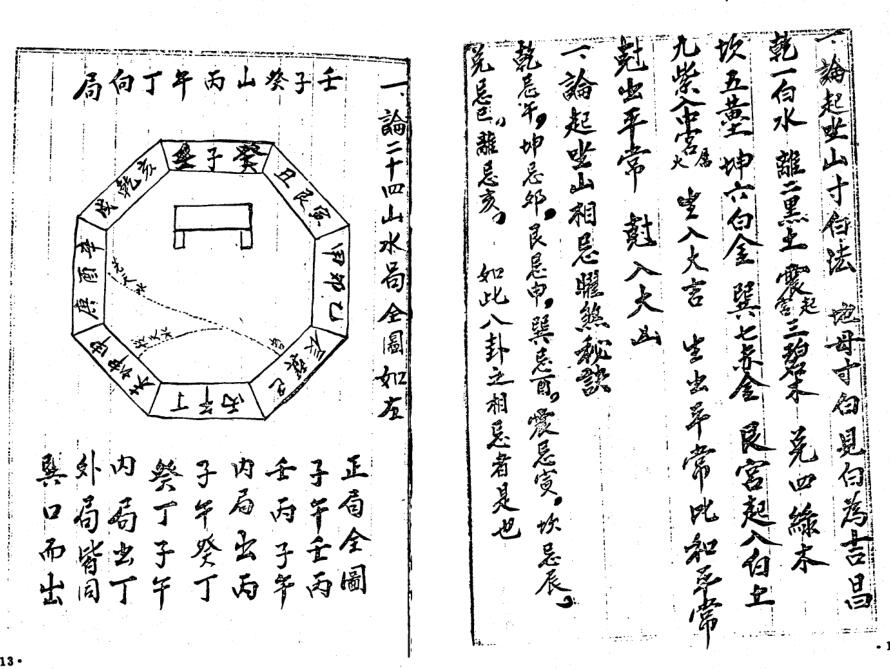 一、論起坐山寸白法 地母寸白見白為吉昌
乾一白水 離二黑土 震宮起三碧木 兌四綠木
坎五黃土 坤六白金 巽七赤金 艮宮起八白土
九紫入中宮屬火 生入大吉 生出平常 比和平常
尅出平常 尅入大凶
一、論起坐山相忌曜煞秘訣
乾忌午，坤忌卯，艮忌申，巽忌酉，震忌寅，坎忌辰。
兌忌巳，離忌亥。 如此八卦之相忌者是也
一、論二十四山水局全圖如左
壬子癸山丙午丁向局
壬子癸
丑艮寅
甲卯乙
辰巽巳
丙午丁
未坤申
庚酉辛
戌乾亥
先天水
正局全圖
子午壬丙
壬丙子午
內局出丙
子午癸丁
癸丁子午
內局出丁
外局皆同
巽口而出
13•